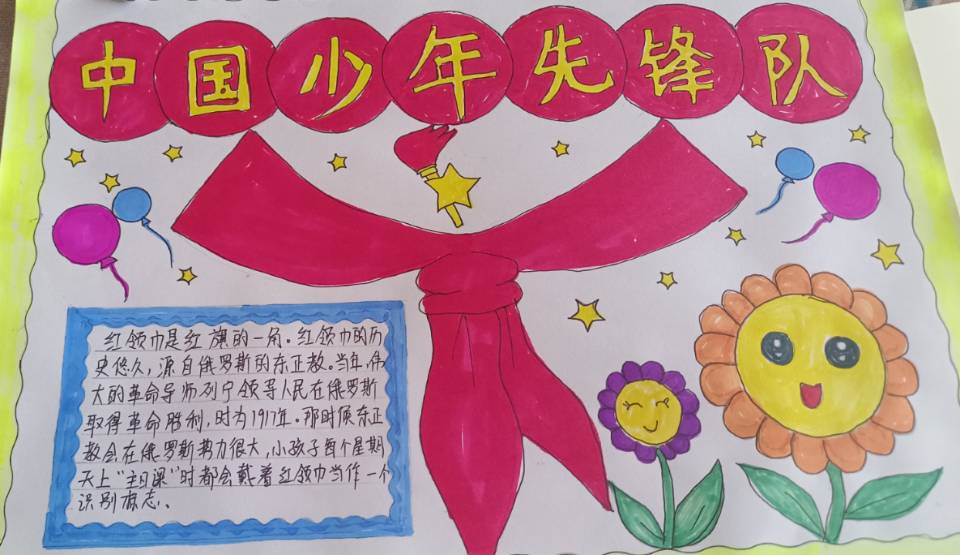 中国少年先锋队
红领巾是红旗的一角。红领巾的历
史悠久，源自俄罗斯的东正教。当年，伟
大的革命导师列宁领导人民在俄罗斯
取得革命胜利，时为1917年。那时候东正
教会在俄罗斯势力很大，小孩子每个星期
天上“主日课”时都会戴着红领巾当作一个
识别标志。